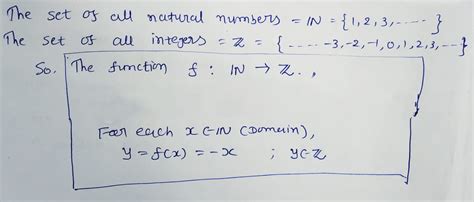 The set of all natural numbers = ℕ = {1, 2, 3, ......}
The set of all integers = ℤ = {..... -3, -2, -1, 0, 1, 2, 3, ...}
So, The function f : ℕ → ℤ . ,
For each x ∈ ℕ (Domain),
y = f(x) = -x ; y ∈ ℤ